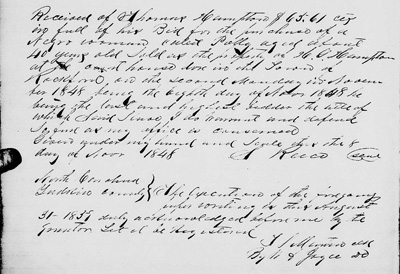 Received of Thomas Hampton $65.61 cts
in full of his Bid for the purchase of a
Negro woman called Polly aged about
40 years old Sold as the property of H. G. Hampton
at the Court house door in the Town of
Rockford, on the second Monday in Novem
ber 1848 being the Eighth day of Novr 1848 he
being the last and highest bidder the title of
which Said I do warrant and defend
so far as my office is concerned
Given under my hand and Seal this the 8
day of Novr 1848 Reece Seal
North Carolina
Yadkin County } The Execution of the
was this August
31 1857 duly acknowledged before me by the
Grantor Let it be Registered
By Joyce DC